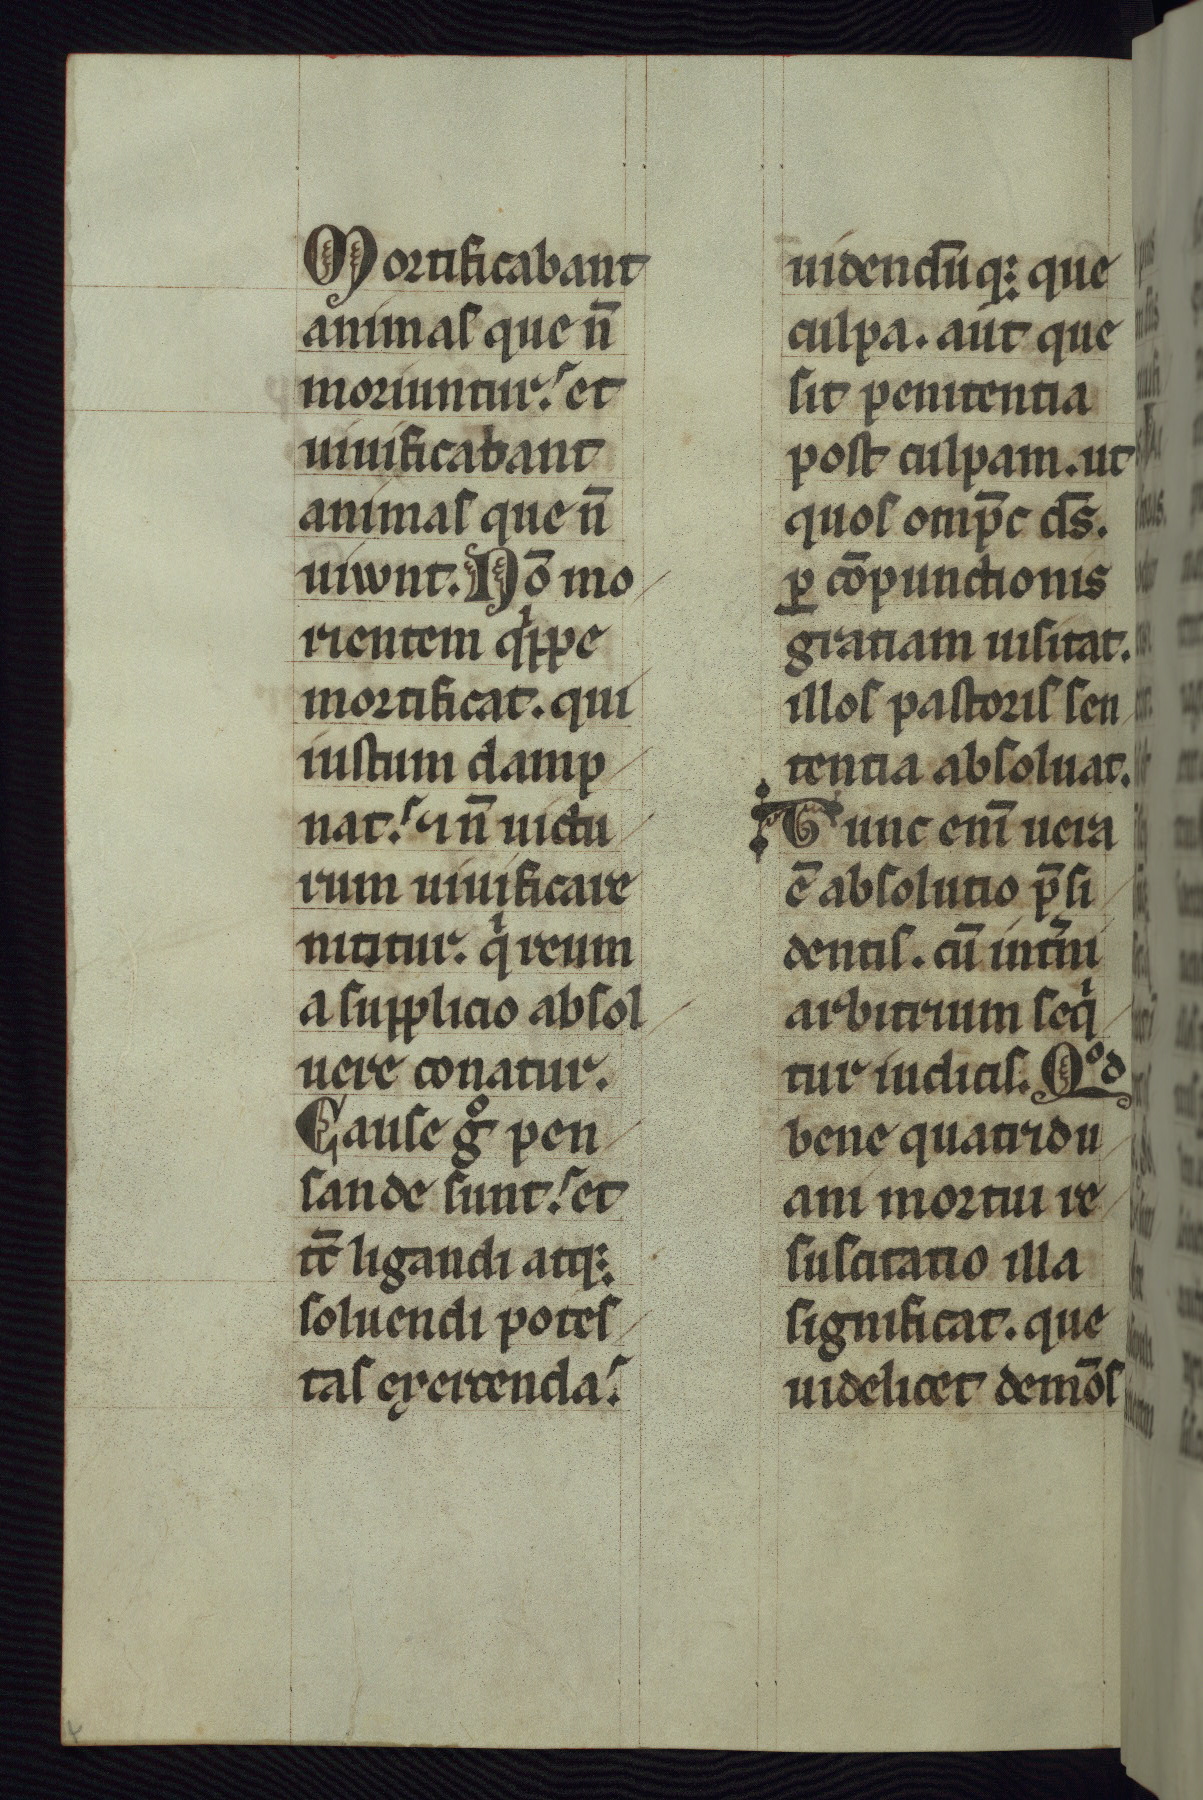 Mortificabant
animas que n̄
moriuntur. et
uiuificabant
animas que n̄
uiuunt. Nō mo
rientem qͥppe
mortificat. qui
iustum damp
nat. ⁊ n̄ uictu
rum uiuificare
nititur. qͥ reum
a supplicio absol
uere conatur.
Cause gͦ pen
sande sunt. et
tc̄ ligandi atqꝫ
soluendi potes
tas exercenda.
uidendūqꝫ que
culpa. aut que
sit penitentia
post culpam. ut
quos omp̄c ds̄.
ꝑ cōpunctionis
gratiam uisitat.
illos pastoris sen
tentia absoluat.
Tunc enī uera
ē absolutio p̄si
dentis. cū int̄ni
arbitrium seqͥ
tur iudicis. Qͦd
bene quatridu
ani mortui re
suscitatio illa
significat. que
uidelicet demōs